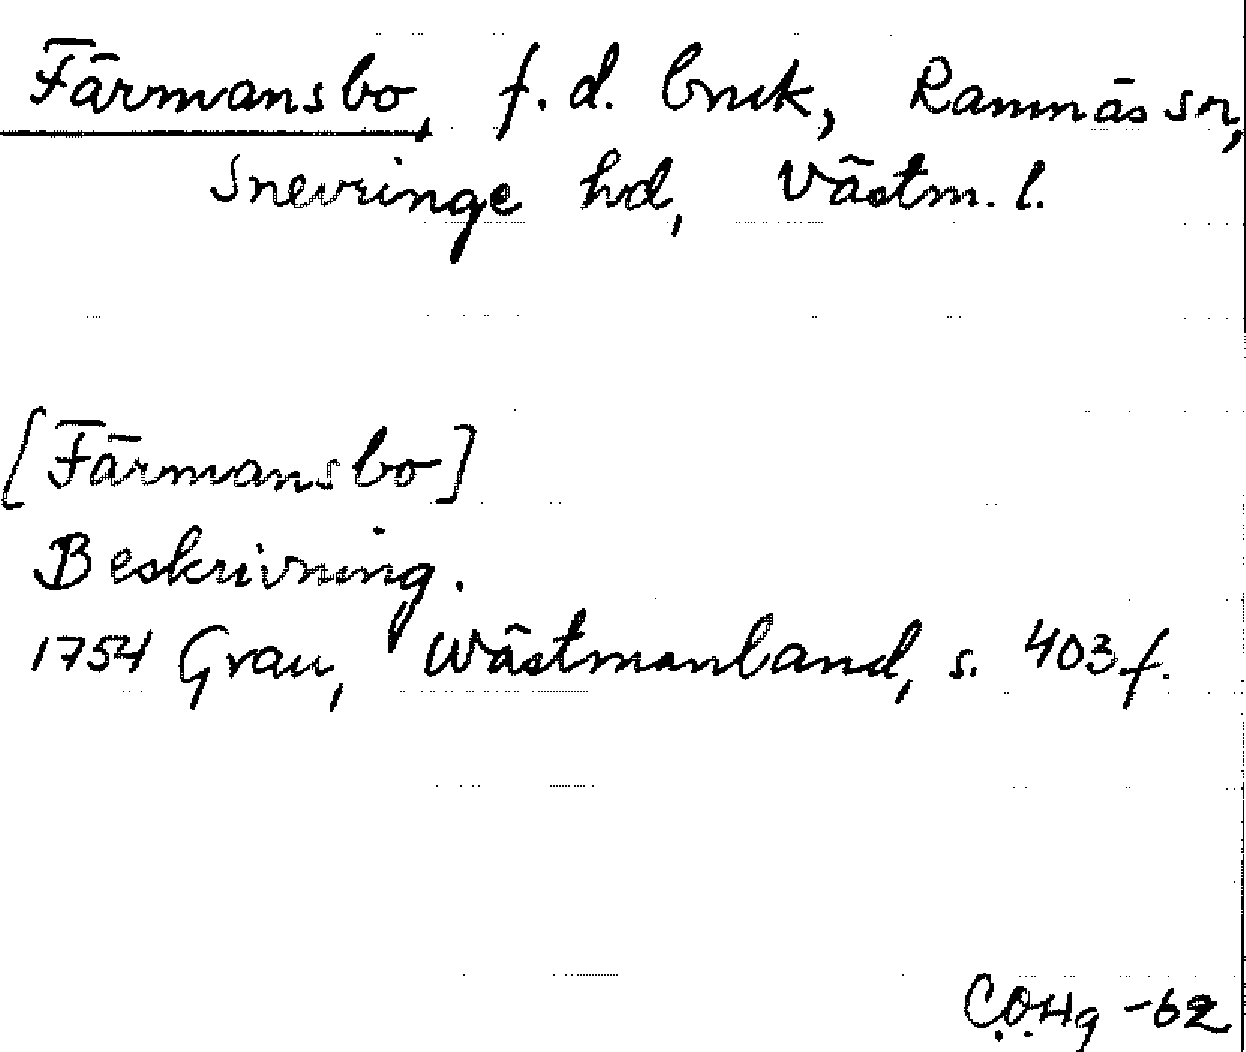 Färmansbo, f.d. bruk, Ramnäs sn,
Snevringe hd, Västm. l.
[Färmansbo]
Beskrivning.
1754 Grau, Wästmanland, s. 403 f.
C.O.Hg -62